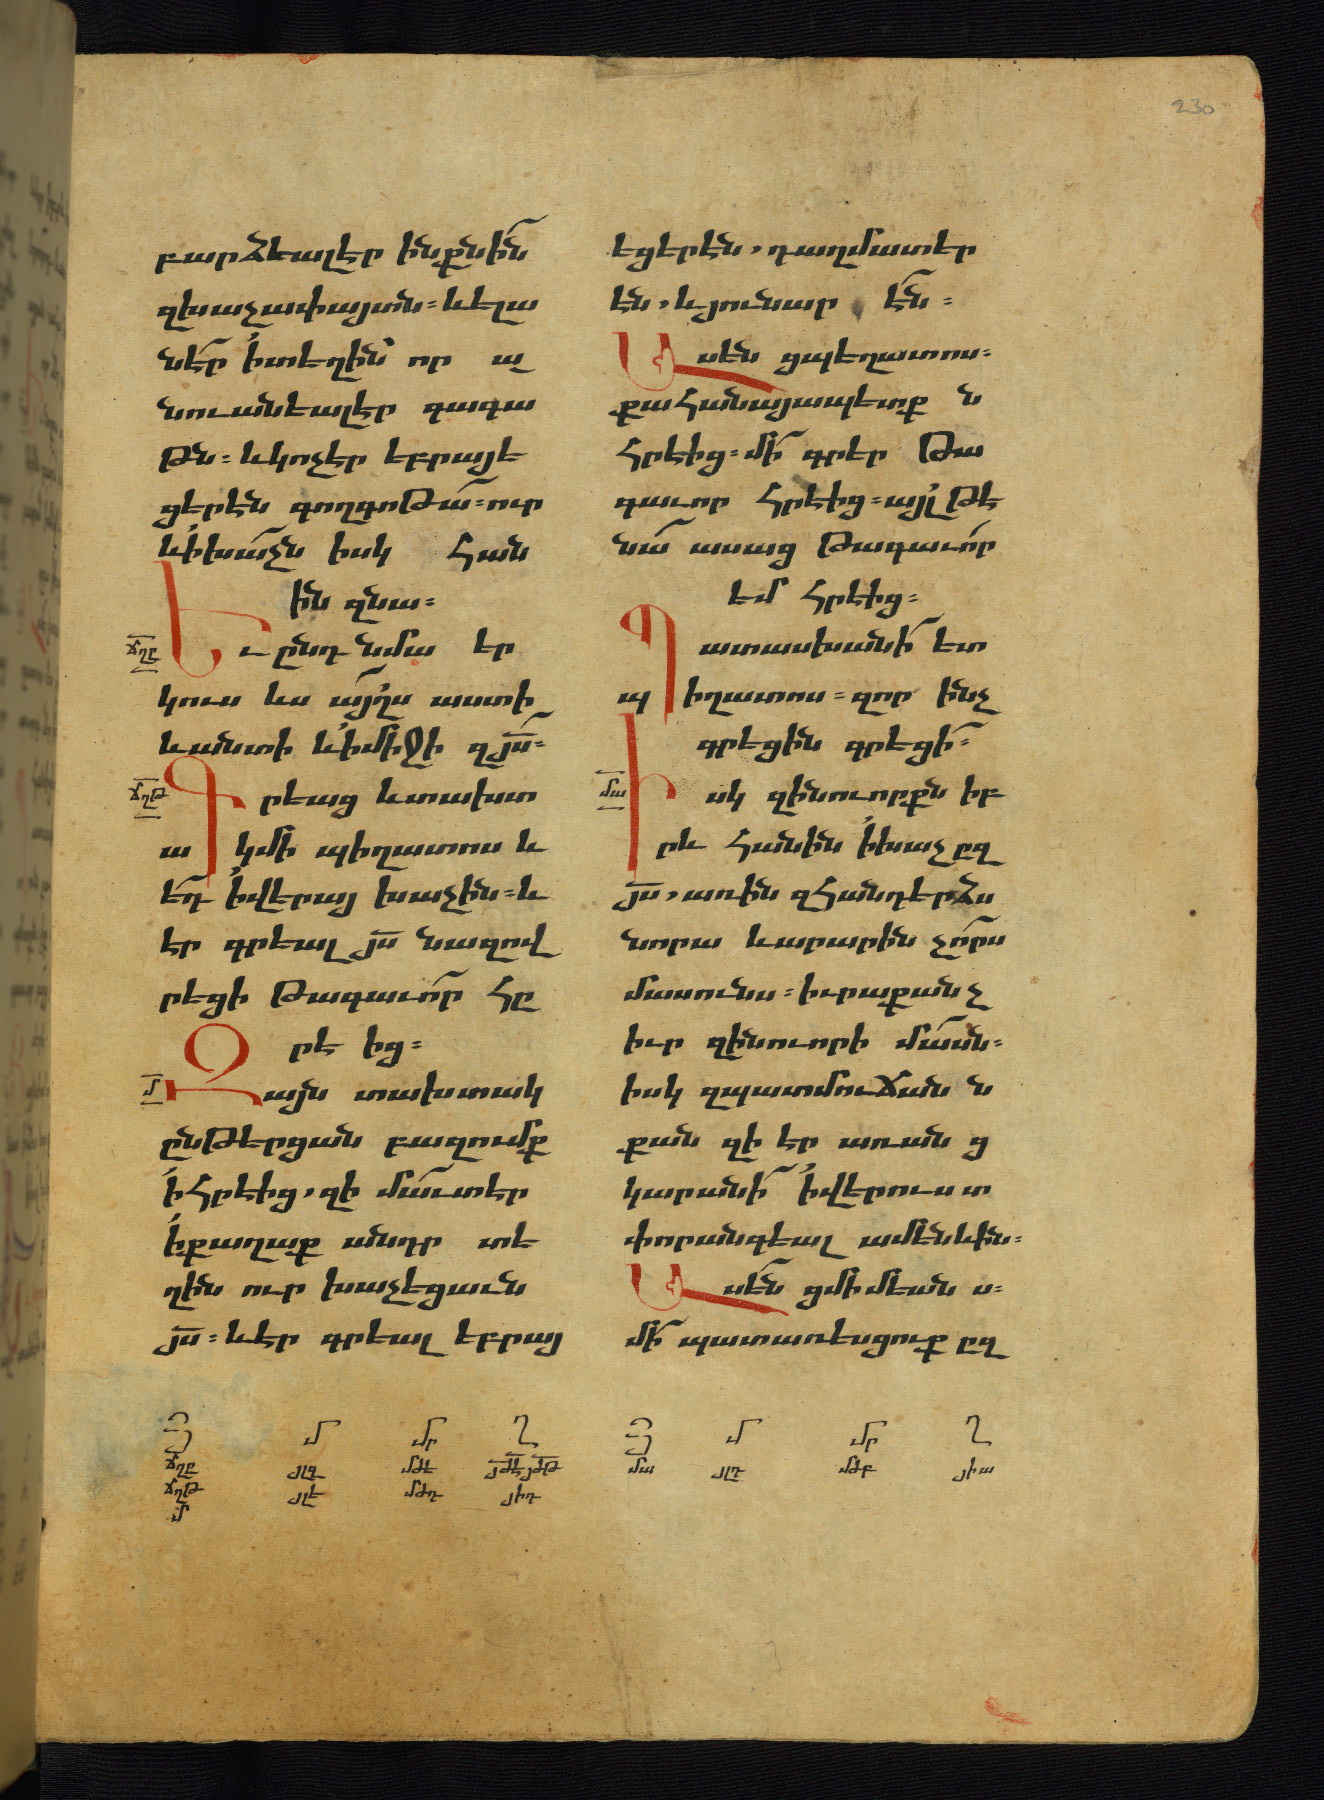 230
բարձեալ էր ինքնին
զխաչափայտն։ և ելա
ներ ի տեղին որ ա
նուանեալ էր գագա
թն։ և կոչէր եբրայե
ցերէն գողգոթա։ ուր
և ի խաչն իսկ հան
ին զնա։
Եւ ընդ նմա եր
կուս ևս այլս աստի
և անտի և ի միջի զյս։
Գրեաց և տախտ
ակ մի պիղատոս և
եդ ի վերայ խաչին։ և
էր գրեալ յս նազով
րեցի թագաւոր հը
րէ ից։
Զայն տախտակ
ընթերցան բազումք
ի հրէից, զի մաւտ էր
ի քաղաք անդր տե
ղին ուր խաչեցաւն
յս։ և էր գրեալ եբրայ
եցերէն, դաղմատէր
էն, և յունարէն։
Ասեն ցպեղատոս։
քահանայապետք ն
հրէից։ մի գրեր թա
գաւոր հրէից։ այլ թե
նա ասաց թագաւոր
եմ հրէից։
Պատասխանի ետ
պիղատոս։ զոր ինչ
գրեցին գրեցի։
Իսկ զինուորքն իբ
րև հանին ի խաչ ըզ
յս, առին զհանդերձս
նորա և արարին չորս
մասունս։ իւրաքանչ
իւր զինուորի մասն։
իսկ զպատմուճան ն
քան զի էր առանց
կարանի ի վերուստ
փորանգեալ ամենևին։
Ասեն ցմիմեանս։
մի պատառեսցուք ըզ
ճղը
ճղթ
մ
մա
Յ Մ Մր Ղ
ճղը յլգ մծե յծէ յծթ
ճղթ յլէ մծդ յիդ
մ
Յ Մ Մր Ղ
մա յլդ մծբ յիա